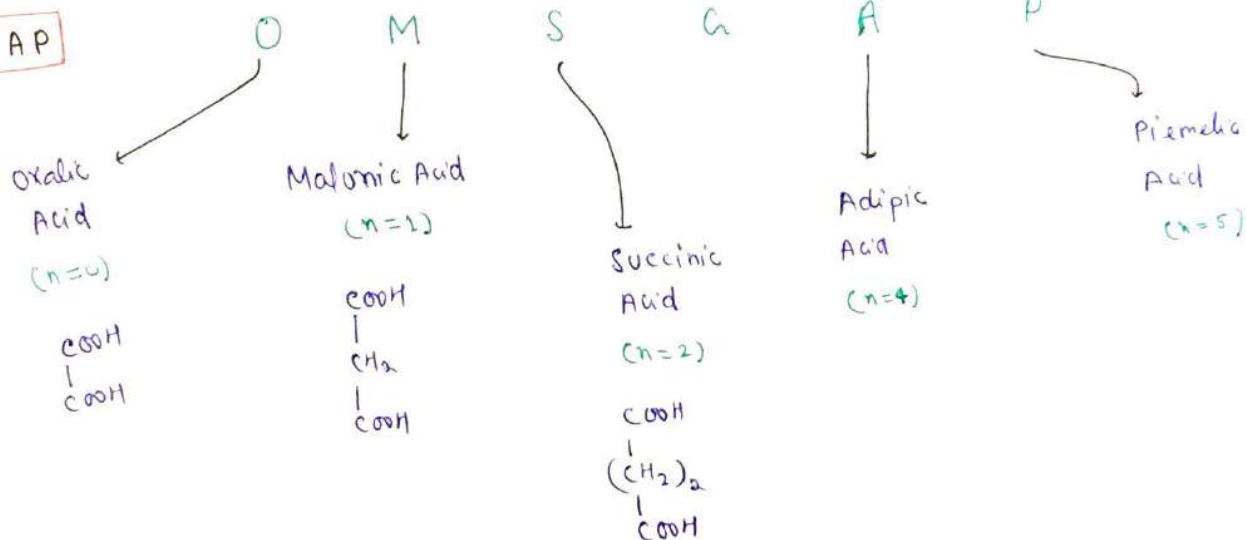 AP
O M S G A P
Oxalic
Acid
(n=0)
COOH
|
COOH
Malonic Acid
(n=1)
COOH
|
CH2
|
COOH
Succinic
Acid
(n=2)
COOH
|
(CH2)2
|
COOH
Adipic
Acid
(n=4)
Piemelic
Acid
(n=5)